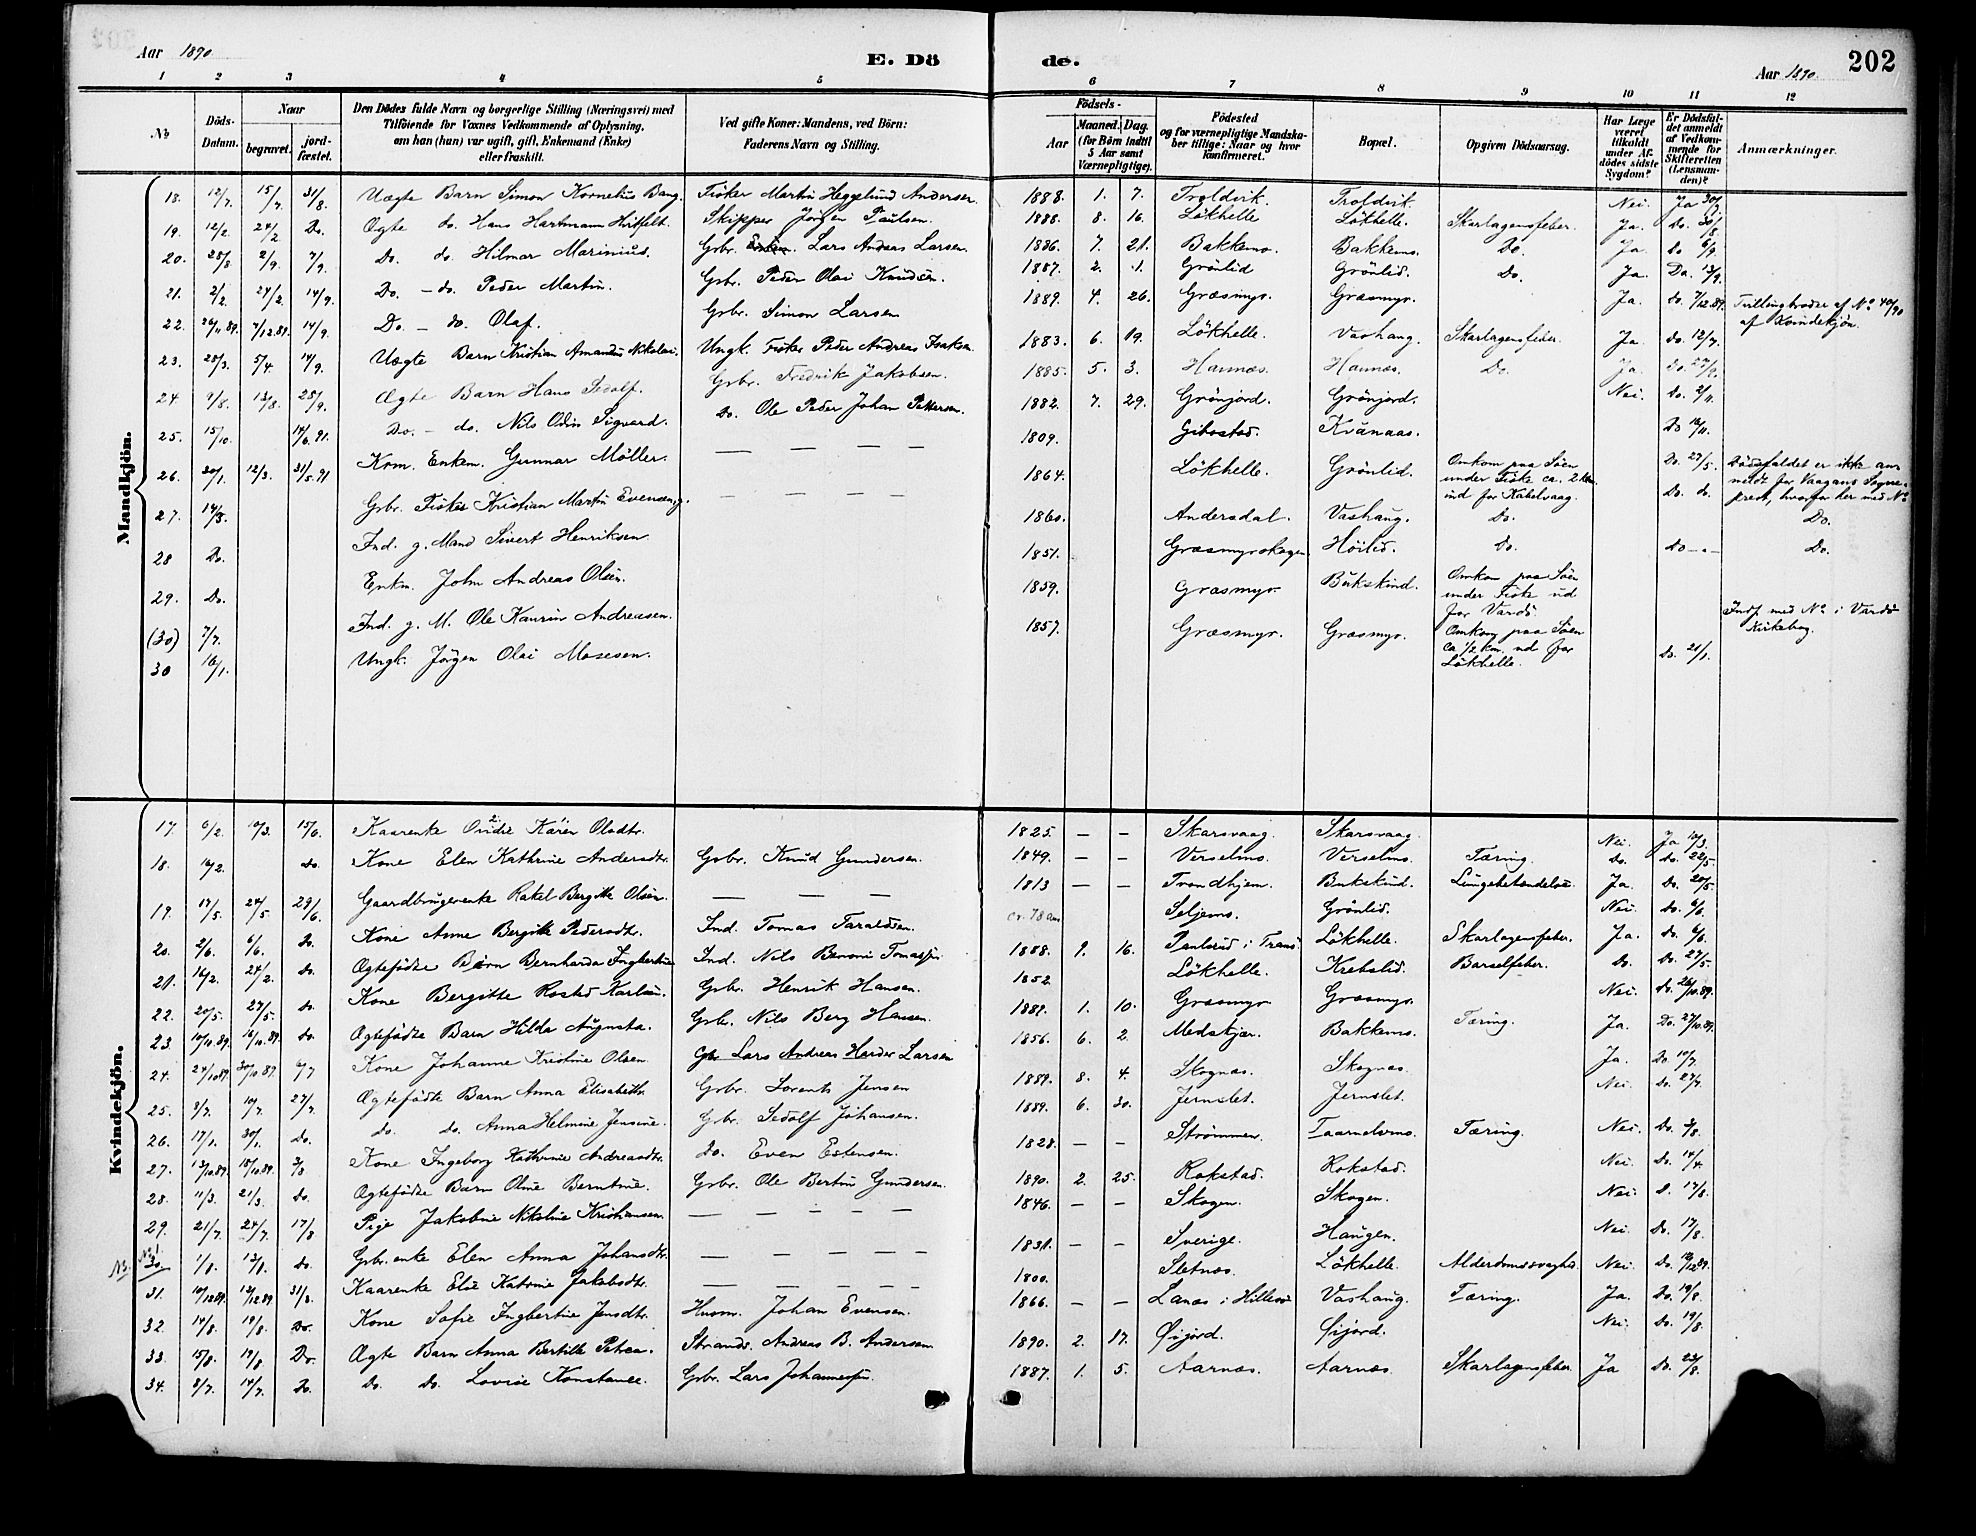 Aar 1890. E. Dö de. Aar 1890. 202
1 2 3 4 5 6 7 8 9 10 11 12
No Döds-Datum. Naar begravet. jord-fæstet. Den Dödes fulde Navn og borgerlige Stilling (Næringsvei) med Tilföiende for Voxnes Vedkommende af Oplysning, om han (hun) var ugift, gift, Enkemand (Enke) eller fraskilt. Ved gifte Koner: Mandens, ved Börn: Faderens Navn og Stilling. Födsels- Aar Maaned. Dag. (for Börn indtil 5 Aar samt Værnepligtige). Födested og for værnepligtige Mandskaber tillige: Naar og hvor konfirmeret. Bopæl. Opgiven Dödsaarsag. Har Læge været tilkaldt under Afdödes sidste Sygdom? Er Dödsfaldet anmeldt af Vedkommende for Skifteretten (Lensmanden)? Anmærkninger.
Mandkjön.
18. 12/7. 15/7. 31/8. Uægte Barn Simon Kornelius Bang Fisker Martin Heggelund Andersen 1888. 1. 7. Troldvik. Troldvik. Nei. Ja 30/7
19. 12/2. 24/2 Do. Ægte do. Hans Hartmann Hritfelt. Skipper Jörgen Paulsen. 1888. 8. 16. Lökhelle. Lökhelle. Skarlagensfeber. Ja. Do.
20. 28/8 2/9. 7/9. Do. do. Hilmar Marinius. Grbr. Lars Andreas Larsen. 1886. 7. 21. Bakkemo. Bakkemo. Do. Ja. do 6/9.
21. 2/2. 24/2. 14/9. Do. - do. Peder Martin. Grbr. Peder Olai Knudsen. 1887. 2. 1. Grönlid Grönlid. Do. Ja. Do. 13/9.
22. 26/11 89. 7/12.89. 14/9. Do. - do. Olaf. Grbr. Simon Larsen 1889. 4. 26. Græsmyr. Græsmyr. Ja. do. 7/12.89. Tvillingbroder af No 40/90 af Kvindekjön.
23. 28/3. 5/4. 14/9. Uægte Barn Kristian Amandus Nikolai. Ungk. Fisker Peder Andreas Isaksen 1883. 6. 19. Lökhelle. Vashaug. Skarlagensfeber. Ja. do. 12/7.
24. 9/8. 13/8. 28/9. Ægte Barn Hans Sedolf. Grbr. Fredrik Jakobsen. 1885. 5. 3. Havnnæs. Havnnæs. Do. Ja. do.
25. 15/10. 14/6.91. Do. - do. Nils Odin Sigvard. Do. Ole Peder Johan Pettersen. 1882. 7. 29. Grönjord. Grönjord. Nei. Do. 2/11.
26. 30/1. 12/3. 31/5.91 Kom. Enkem. Gunnar Möller. — — — — 1809. Gibostad. Kvænaas. Do
27. 14/3. Grbr. Fisker Kristian Martin Evensen. — — — — 1864. Lökhelle. Grönlid. Omkom paa Söen under Fiske ca. 2 km ind for Kabelvaag. Do. 27/5. Dödsfaldet er ikke anmeldt for Vaagans Sognepræst, hvorfor her med No
28 Do. Ind. g. Mand Sivert Henriksen 1860. Andersdal. Vashaug. Do. Do. do. Do.
29. Do. Enkm. John Andreas Olsen. 1851. Græsmyrskogen Höilid. Do. Do - - Do.
(30) 7/7. Ind. g. M. Ole Kaurin Andreasen. 1859. Græsmyr. Bukskind. Omkom paa Söen under Fiske ud for Vardö. Indf. med No i Vardö Kirkebog.
30 16/1. Ungk. Jörgen Olai Mosesen. 1857. Græsmyr. Græsmyr. Omkom paa Söen ca 1/2 km. ud for Lökhelle. Do. 21/1.
Kvindekjön.
17. 6/2. 10/3. 15/6. Kaarenke Karen Olsdtr. 1825. — — Skarsvaag. Skarsvaag. Nei. Ja 10/3.
18. 16/2. Do. Kone Elen Kathrine Andersdtr. Grbr. Knud Gundersen. 1849. — — Verselmo. Verselmo. Tæring. do. do. 22/5.
19. 17/5. 24/5 29/6. Gaardbrugerenke Rakel Bergitte Olsen. — — — 1813 — — Trondhjem. Bukskind. Lungebetændelse. Ja. Do. 20/5.
20. 2/6. 6/6. Do. Kone Anne Bergitte Pedersdtr. Ind. Tomas Taraldsen. ca. 78 aar Seljemo. Grönlid. Nei. Do. 6/6.
21. 16/2. 24/2. do. Ægtefödte Barn Bernharda Ingbertine Ind. Nils Benoni Tomassen 1888. 9. 16. Lökhelle. Skarlagensfeber. Ja. Do. 6/6.
22. 20/5. 27/5. do. Kone Bergitte Rostad Karlsen. Grbr. Henrik Hansen. 1852. Lökhelle. Krebslid. Barselfeber. do. Do. 27/5.
23. 10/10.89. 16/10.89. do. Ægtefödte Barn Hilda Augusta. Grbr. Nils Berg Hansen. 1889. 1. 10. Græsmyr. Græsmyr. Nei. Do. 26/10.89.
24. 24/10.89. 30/10.89. Kone Johanne Kristine Olsen Grbr Lars Andreas Harder Larsen 1856. 6. 2. Medskjær. Bakkemo. Tæring. Ja. Do. 27/10.89.
25. 3/7. 10/7. 27/7. Ægtefödte Barn Anna Elisabeth. Grbr. Lorents Jensen 1889. 8. 4. Skognæs. Skognæs. Ja. Do. 10/7.
26. 17/1. 30/1. Do. do. do. Anna Helmine Jensine. Grbr. Sedolf Johansen. 1889. 6. 30. Jernslet. Jernslet. Nei. do. 27/7.
27. 13/10.89. 18/10.89. 3/8 Kone Ingeborg Kathrine Andreasdtr. Do. Even Estensen. 1828. — — Strömmen. Taarnelvmo. Tæring. Nei. Do. 3/8.
28. 11/3. 21/3. Do. Ægtefödte Barn Oline Berntine. Grbr. Ole Bertin Gundersen. 1890. 2. 25. Rokstad. Rokstad. Nei. Do. 14/4.
29. 21/7. 24/7. 17/8 Pige Jakobine Nikoline Kristiansen — — — — — 1846. — — Skogen. Skogen. Nei. D. 17/8.
30. 1/8. 13/8. Do. Grbr.enke Elen Anna Johansdtr. — — — — — 1831. — — Sverige. Haugen. Nei. Do. 17/8.
31. 10/12.89. 12/12.89. 31/8. Kaarenke Else Katrine Jakobsdtr. — — — — — 1800. Sletnæs. Lökhelle. Alderdomssvaghed. Nei. Do.
32. 14/8. 19/8. Do. Kone Sofie Ingbertine Jensdtr. Husm. Johan Evensen. 1866. — — Lanæs i Hillesö Vashaug. Tæring. Ja. Do. 19/8.
33. 15/8. 19/8. Do. Ægte Barn Anna Bertille Petrea. Strands. Andreas B. Andersen 1890. 2. 17. Öijord. Öijord. Nei. Do. 19/8.
34. 8/7. 14/7. Do. Do. do. Lovise Konstance. Grbr. Lars Johannessen. 1887. 1. 5. Aarnæs. Aarnæs. Skarlagensfeber. Ja Do. 23/8.